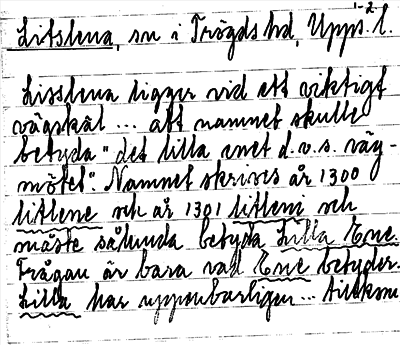 1-2
Litslena, sn i Trögds hd, Upps. l.
Lisslena ligger vid ett viktigt
vägskäl ... att namnet skulle
betyda "det lilla enet d.v.s. väg-
mötet". Namnet skrives år 1300
litlene och år 1301 litleni och
måste sålunda betyda Lilla Ene.
Frågan är bara vad Ene betyder.
Lilla har uppenbarligen ...